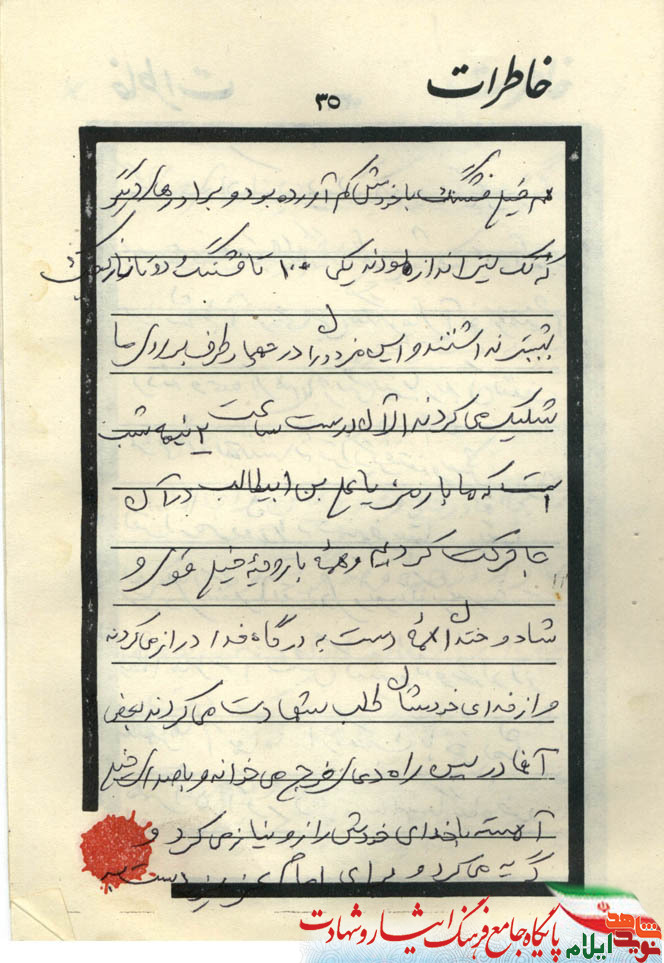 خاطرات
۳۵
هم خیلی فشنگ با خودش کم آورده بود و برادرهای دیگر
که تک تیرانداز بودند یکی ۱۰۰ تا فشنگ
نداشتند و این مزدوران در چهار طرف بر روی ما
شلیک می کردند الآن درست ساعت ۲ نیمه شب
است که ما با رمز یا علی بن ابیطالب در آن
جا حرکت کردیم و همه با روحیه خیلی قوی و
شاد و خندان همه دست به درگاه خدا دراز می کردند
و از خدای خودشان طلب شهادت می کردند بعضی
در بین راه دعای فرج می خواند و با صدای خیلی
آهسته با خدای خودش راز و نیاز می کرد و
گریه می کرد و برای امام عزیز دست به
پایگاه جامع فرهنگ ایثار و شهادت
نوید شاهد
ایلام